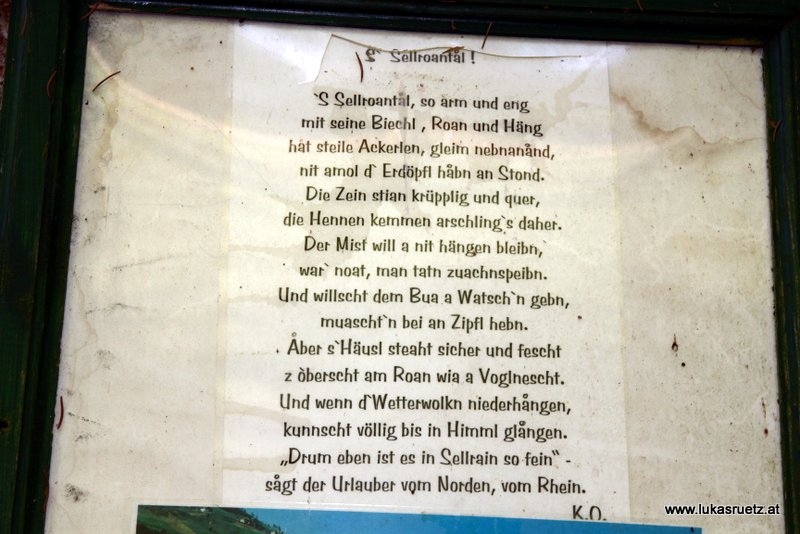 `S Sellroantal !
`S Sellroantål, so arm und eng
mit seine Biechl , Roan und Häng
håt steile Ackerlen, gleim nebnanånd,
nit amol d` Erdöpfl håbn an Stond.
Die Zein stian krüpplig und quer,
die Hennen kemmen arschling`s daher.
Der Mist will a nit hängen bleibn,
war` noat, man tatn zuachnspeibn.
Und willscht dem Bua a Watsch`n gebn,
muascht`n bei an Zipfl hebn.
Åber s`Häusl steaht sicher und fescht
z òberscht am Roan wia a Voglnescht.
Und wenn d`Wetterwolkn niederhången,
kunnscht völlig bis in Himml glången.
„Drum eben ist es in Sellrain so fein“ -
sågt der Urlauber vom Norden, vom Rhein.
K.O.
www.lukasruetz.at